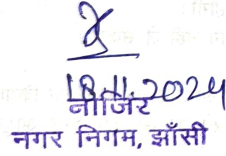 18.11.2024
नाजिर
नगर निगम, झाँसी